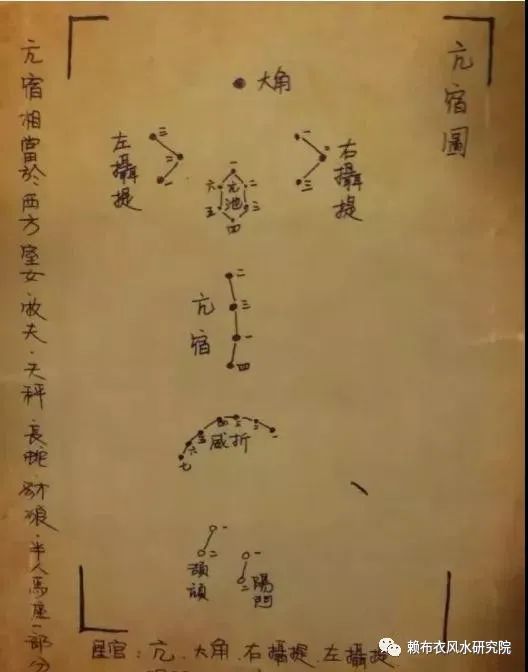 亢宿圖
大角
右攝提
一
二
三
左攝提
三
二
一
亢池
一
二
三
四
五
六
亢宿
二
三
一
四
折威
一
二
三
四
五
六
七
頏頑
一
二
陽門
一
二
亢宿相當於西方室女·牧夫·天秤·長蛇·豺狼·半人馬座一部分
星官:亢、大角、右攝提、左攝提
赖布衣风水研究院